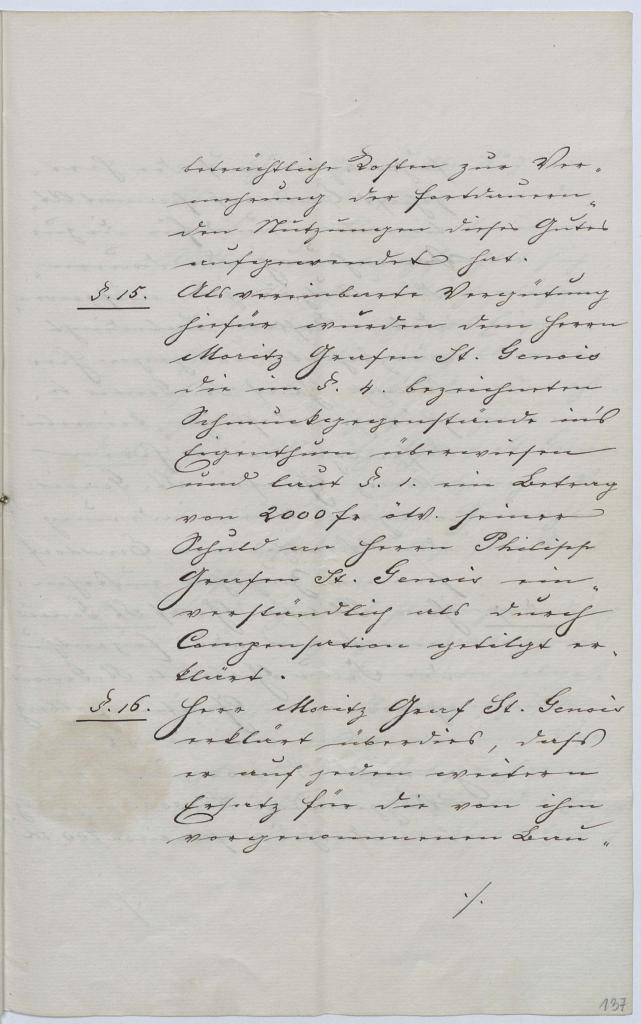 beträchtliche Kosten zur Ver-
mehrung der fortdauern-
den Nutzungen dieses Gutes
aufgewendet hat.
§. 15. Als vereinbarte Vergütung
hiefür wurden dem Herrn
Moritz Grafen St. Genois
die im §. 4. bezeichneten
Schmuckgegenstände in's
Eigenthum überwiesen
und laut §. 1. ein Betrag
von 2000 fr öW. seiner
Schuld an Herrn Philipp
Grafen St. Genois ein„
verständlich als durch
Compensation getilgt er-
klärt.
§. 16. Herr Moritz Graf St. Genois
erklärt überdies, dass
er auf jeden weitern
Ersatz für die von ihm
vorgenommenen Bau„
./.
137